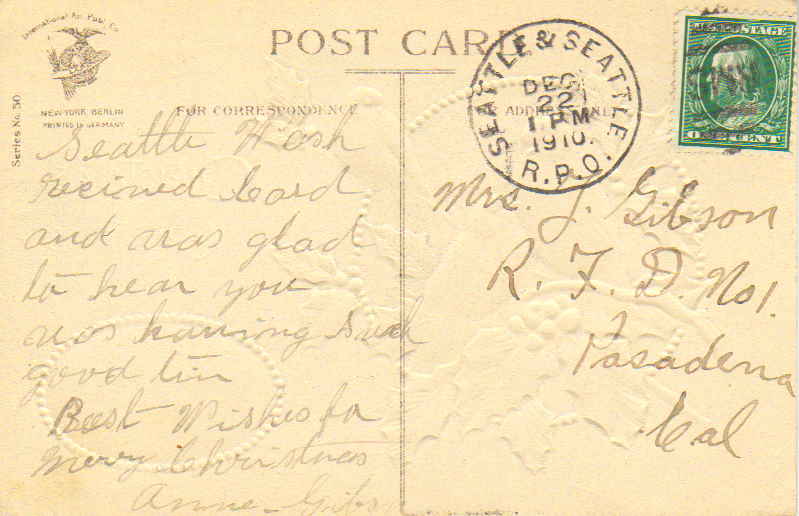 International Art Publ. Co.
NEW-YORK BERLIN
PRINTED IN GERMANY
Series No. 50
POST CARD
FOR CORRESPONDENCE
ADDRESS ONLY
SEATTLE & SEATTLE
DEC
22
1 PM
1910.
R.P.O.
U.S. POSTAGE
ONE CENT
Seattle Wash
recieved Card
and was glad
to hear you
was having such
good tim
Best Wishes for
Merry Christmas
Anna Gibs
Mrs. J. Gibson
R. F. D. No 1.
Pasadena
Cal